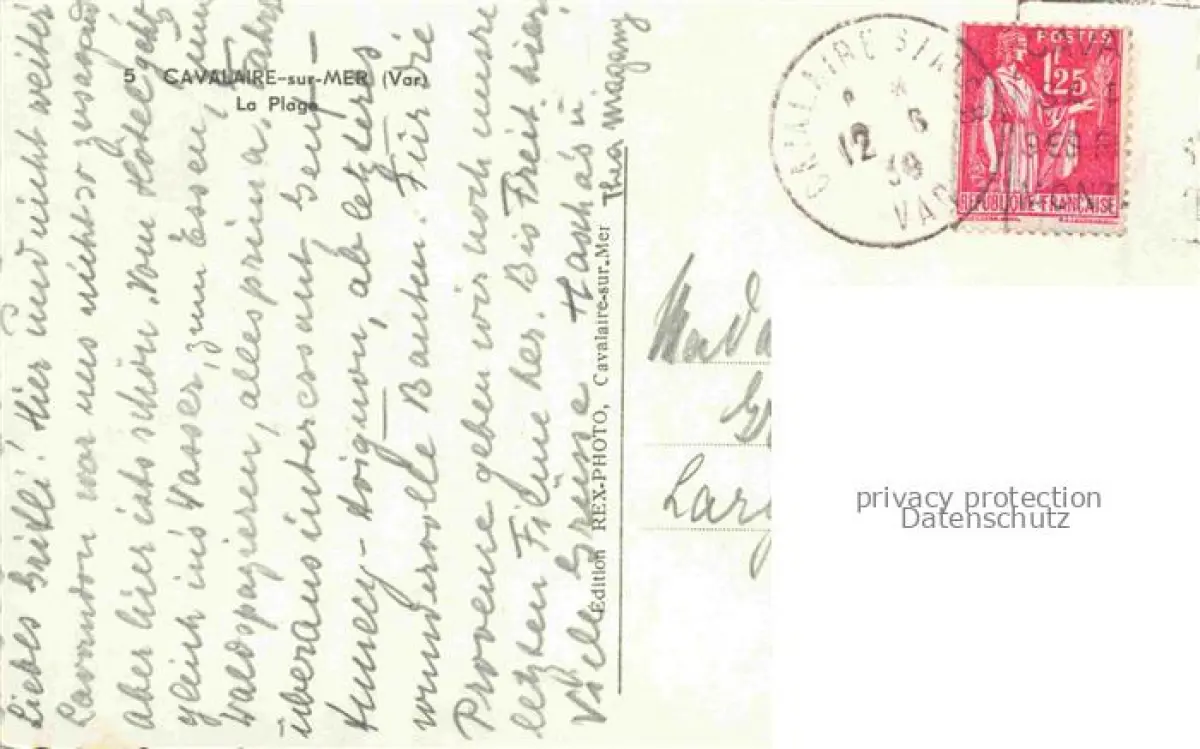 5 CAVALAIRE-sur-MER (Var)
La Plage
Liebes Gritli! Hier sind nicht weiter
Lavandou war uns nicht so zusagend
aber hier ists schön. Vom Hotel geht
gleich ins Wasser, zum Essen, zum
Waldspazieren, alles prima. Fahrt
überaus interessant Genf-
Annecy-Avignon, ab letzteres
wundervolle Bauten. Für die
Provence geben wir noch unsre
letzten Filme her. Bis Freit. hier.
Viele Grüsse
Édition REX-PHOTO, Cavalaire-sur-Mer
CAVALAIRE
12 6
39
VAR
POSTES
1F25
REPUBLIQUE FRANÇAISE
Mada
privacy protection
Datenschutz